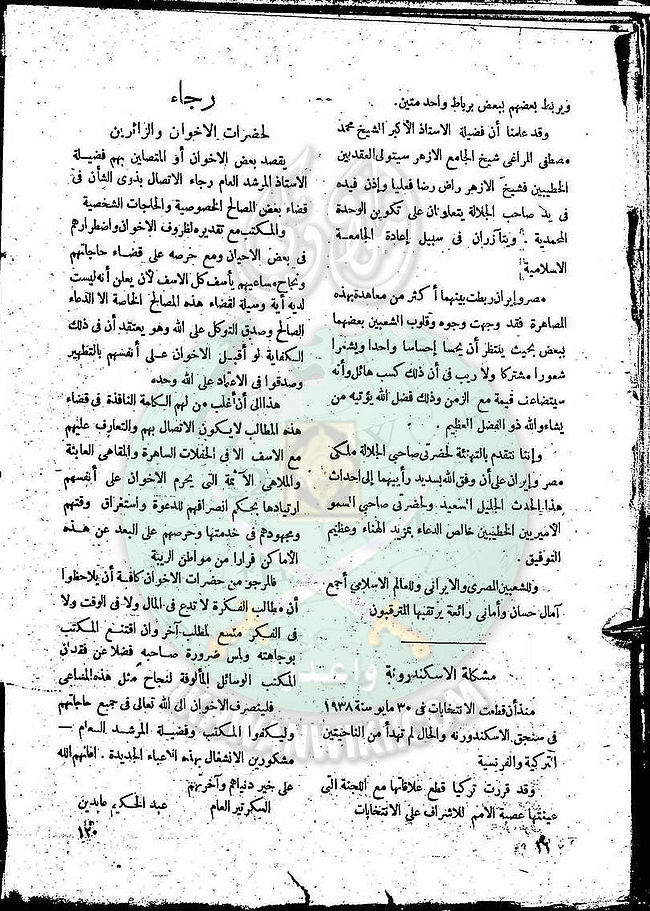 ويربط بعضهم ببعض برباط واحد متين.
وقد علمنا أن فضيلة الاستاذ الأكبر الشيخ محمد
مصطفى المراغى شيخ الجامع الازهر سيتولى العقد بين
الخطيبين فشيخ الازهر راض رضا فعليا وإذن فيده
فى يد صاحب الجلالة يتعاونان على تكوين الوحدة
المحمدية . ويتآزران فى سبيل إعادة الجامعة
الاسلامية
مصر وإيران ربطت بينهما أكثر من معاهدة بهذه
المصاهرة فقد وجهت وجوه وقلوب الشعبين بعضهما
ببعض بحيث ينتظر أن يحسا إحساسا واحدا ويشعرا
شعورا مشتركا ولا ريب فى أن ذلك كسب هائل وأنه
سيتضاعف قيمة مع الزمن وذلك فضل الله يؤتيه من
يشاء والله ذو الفضل العظيم .
وإننا نتقدم بالتهنئة لحضرتى صاحبى الجلالة ملكى
مصر وإيران على أن وفق الله بسديد رأيهما إلى احداث
هذا الحدث الجليل السعيد . ولحضرتى صاحبى السمو
الأميريين الخطيبين خالص الدعاء بمزيد الهناء وعظيم
التوفيق .
وللشعبين المصرى والايرانى وللعالم الاسلامى أجمع
آمال حسان وأمانى رائعة يرتقبها المترقبون
مشكلة الاسكندرونة
منذ أن قطعت الانتخابات فى ٣٠ مايو سنة ١٩٣٨
فى سنجق الاسكندرونه والحال لم تهدأ من الناحيتين
التركية والفرنسية
وقد قررت تركيا قطع علاقاتها مع اللجنة التى
عينتها عصبة الامم للاشراف على الانتخابات
رجاء
لحضرات الاخوان والزائرين
يقصد بعض الاخوان أو المتصلين بهم فضيلة
الاستاذ المرشد العام رجاء الاتصال بذوى الشأن فى
قضاء بعض المصالح الخصوصية والحاجات الشخصية
والمكتب مع تقديره لظروف الاخوان واضطرارهم
فى بعض الاحيان ومع حرصه على قضاء حاجاتهم
ونجاح مساعيهم يأسف كل الاسف لأن يعلن أنه ليست
لديه أية وسيلة لقضاء هذه المصالح الخاصة الا الدعاء
الصالح وصدق التوكل على الله وهو يعتقد أن فى ذلك
الكفاية لو أقبل الاخوان على أنفسهم بالتطهير
وصدقوا فى الاعتماد على الله وحده
هذا الى أن أغلب من لهم الكلمة النافذة فى قضاء
هذه المطالب لا يكون الاتصال بهم والتعارف عليهم
مع الاسف الا فى الحفلات الساهرة والمقاهى العابثة
والملاهى الآثمة التى يحرم الاخوان على أنفسهم
ارتيادها بحكم انصرافهم للدعوة واستغراق وقتهم
ومجهودهم فى خدمتها وحرصهم على البعد عن هذه
الاماكن فرارا من مواطن الريبة
فالمرجو من حضرات الاخوان كافة أن يلاحظوا
أن مطالب الفكرة لا تدع فى المال ولا فى الوقت ولا
فى الفكر متسع لمطلب آخر وان اقتنع المكتب
بوجاهته ولمس ضرورة صاحبه فضلا عن فقدان
المكتب الوسائل المألوفة لنجاح مثل هذه المساعى
فلينصرف الاخوان الى الله تعالى فى جميع حاجاتهم
وليكفوا المكتب وفضيلة المرشد العام —
مشكورين الانشغال بهذه الاعباء الجديدة . أعانهم الله
على خير دنياهم وآخرتهم
السكرتير العام
عبد الحكيم عابدين